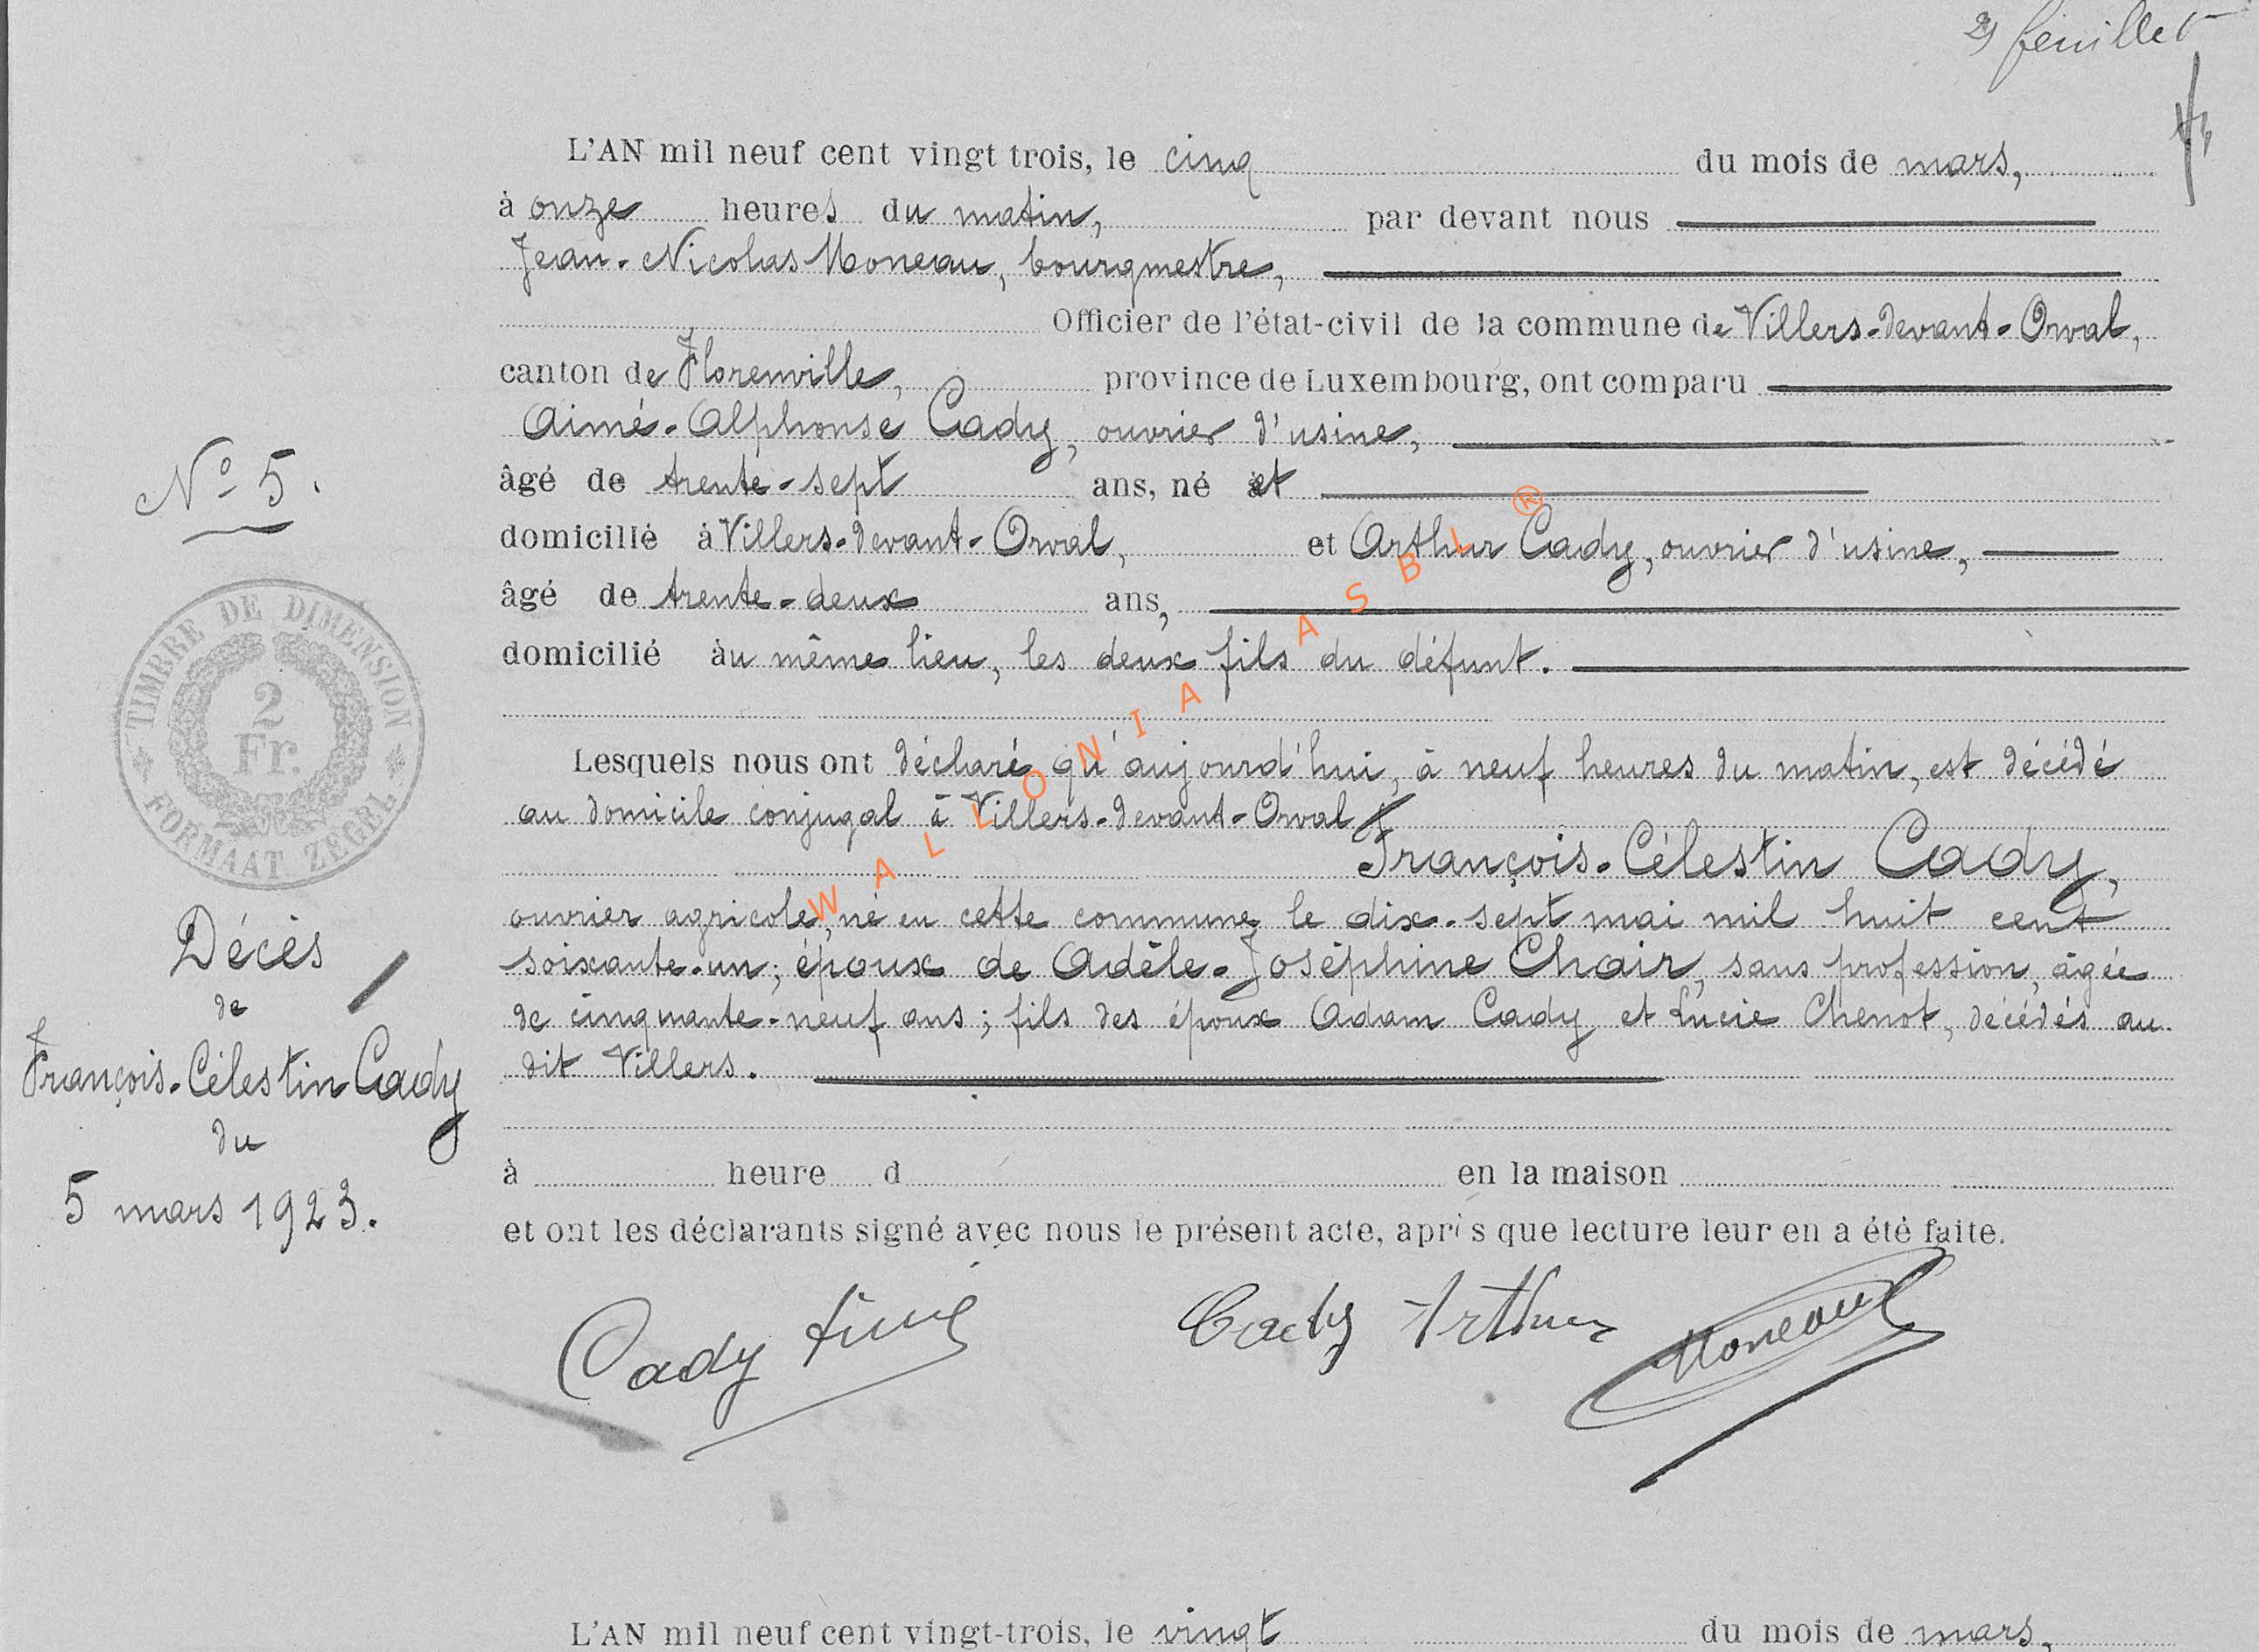 2) feuillet
L'AN mil neuf cent vingt trois, le cinq du mois de mars,
à onze heures du matin, par devant nous
Jean-Nicolas Moneau, bourgmestre,
Officier de l'état-civil de la commune de Villers-devant-Orval,
canton de Florenville, province de Luxembourg, ont comparu
Aimé-Alphonse Cady, ouvrier d'usine,
âgé de trente-sept ans, né et
domicilié à Villers-devant-Orval, et Arthur Cady, ouvrier d'usine,
âgé de trente-deux ans,
domicilié au même lieu, les deux fils du défunt.
Lesquels nous ont déclaré qu'aujourd'hui, à neuf heures du matin, est décédé
au domicile conjugal à Villers-devant-Orval
François-Célestin Cady,
ouvrier agricole, né en cette commune le dix-sept mai mil huit cent
soixante-un; époux de Adèle-Joséphine Chair, sans profession, âgée
de cinquante-neuf ans; fils des époux Adam Cady et Lucie Chenot, décédés au
dit Villers.
à heure d en la maison
et ont les déclarants signé avec nous le présent acte, après que lecture leur en a été faite.
Cady Aimé Cady Arthur Moneau
N° 5.
TIMBRE DE DIMENSION
2
Fr.
FORMAAT ZEGEL
Décès
de
François-Célestin Cady
du
5 mars 1923.
WALLONIA ASBL ®
L'AN mil neuf cent vingt-trois, le vingt du mois de mars,